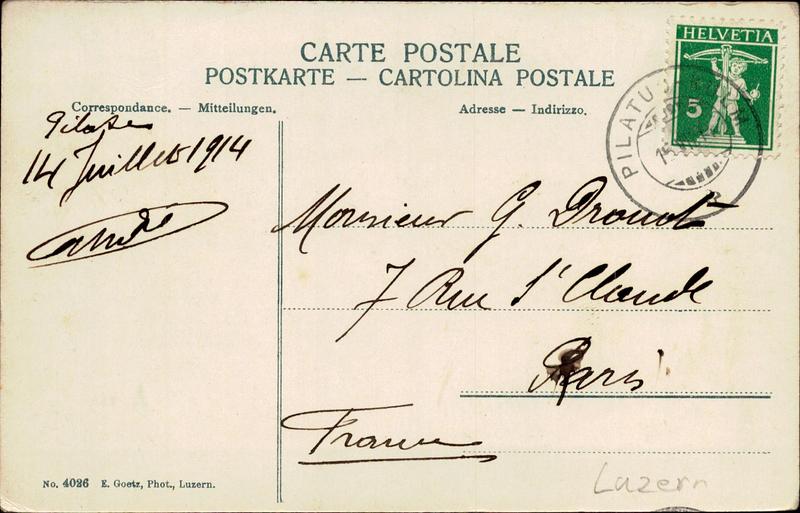 CARTE POSTALE
POSTKARTE — CARTOLINA POSTALE
Correspondance. — Mitteilungen.
Adresse — Indirizzo.
HELVETIA
5
PILATUS
14 Juillet 1914
André
Monsieur G. Drouot
7 Rue St Claude
Paris
France
No. 4026 E. Goetz, Phot., Luzern.
Luzern